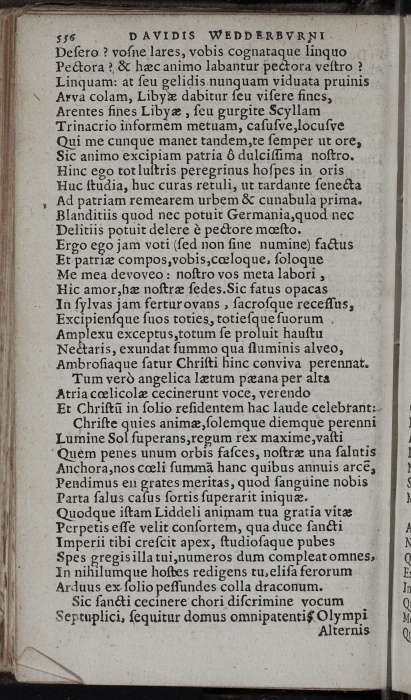 556 DAVIDIS WEDDERBVRNI
Desero ? vosne lares, vobis cognataque linquo
Pectora ? & hæc animo labantur pectora vestro ?
Linquam: at seu gelidis nunquam viduata pruinis
Arva colam, Libyæ dabitur seu visere fines,
Arentes fines Libyæ, seu gurgite Scyllam
Trinacrio informem metuam, casusve, locusve
Qui me cunque manet tandem, te semper ut ore,
Sic animo excipiam patria ô dulcissima nostro.
Hinc ego tot lustris peregrinus hospes in oris
Huc studia, huc curas retuli, ut tardante senecta
Ad patriam remearem urbem & cunabula prima.
Blanditiis quod nec potuit Germania, quod nec
Delitiis potuit delere è pectore mœsto.
Ergo ego jam voti (sed non sine numine) factus
Et patriæ compos, vobis, cœloque, soloque
Me mea devoveo : nostro vos meta labori,
Hic amor, hæ nostræ sedes. Sic fatus opacas
In sylvas jam fertur ovans, sacrosque recessus,
Excipiensque suos toties, totiesque suorum
Amplexu exceptus, totum se proluit haustu
Nectaris, exundat summo qua fluminis alveo,
Ambrosiaque satur Christi hinc conviva perennat.
Tum verò angelica lætum pæana per alta
Atria cœlicolæ cecinerunt voce, verendo
Et Christũ in solio residentem hac laude celebrant:
Christe quies animæ, solemque diemque perenni
Lumine Sol superans, regum rex maxime, vasti
Quem penes unum orbis fasces, nostræ una salutis
Anchora, nos cœli summâ hanc quibus annuis arcẽ,
Pendimus en grates meritas, quod sanguine nobis
Parta salus casus sortis superarit iniquæ.
Quodque istam Liddeli animam tua gratia vitæ
Perpetis esse velit consortem, qua duce sancti
Imperii tibi crescit apex, studiosaque pubes
Spes gregis illa tui, numeros dum compleat omnes,
In nihilumque hostes redigens tu, elisa ferorum
Arduus ex solio pessundes colla draconum.
Sic sancti cecinere chori discrimine vocum
Septuplici, sequitur domus omnipatentis Olympi
Alternis